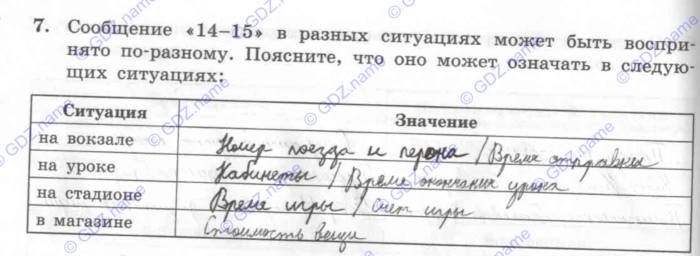 7. Сообщение «14–15» в разных ситуациях может быть воспри-
нято по-разному. Поясните, что оно может означать в следую-
щих ситуациях:
Ситуация Значение
на вокзале Номер поезда и перона / Время отправки
на уроке Кабинеты / Время окончания урока
на стадионе Время игры / Счет игры
в магазине Стоимость вещи
© GDZ.name